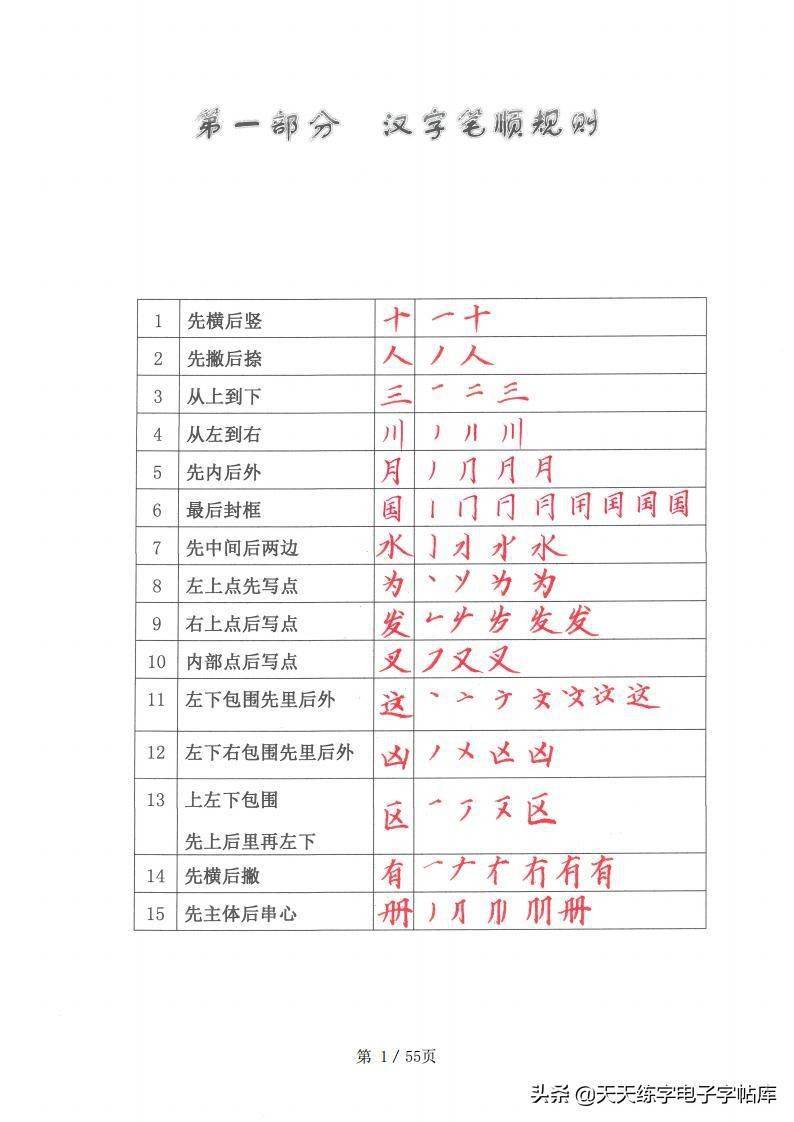 第一部分 汉字笔顺规则
1 先横后竖 十 一 十
2 先撇后捺 人 丿 人
3 从上到下 三 一 二 三
4 从左到右 川 丿 川
5 先内后外 月 丿 月
6 最后封框 国 丨 冂 国
7 先中间后两边 水 亅 水
8 左上点先写点 为 丶 为
9 右上点后写点 发 发
10 内部点后写点 叉 フ 又 叉
11 左下包围先里后外 这 丶 亠 文 这
12 左下右包围先里后外 凶 丿 乂 凶
13 上左下包围 区 一 区
先上后里再左下
14 先横后撇 有 一 ナ 有
15 先主体后串心 册 丿 册
第 1 / 55页
头条 @天天练字电子字帖库